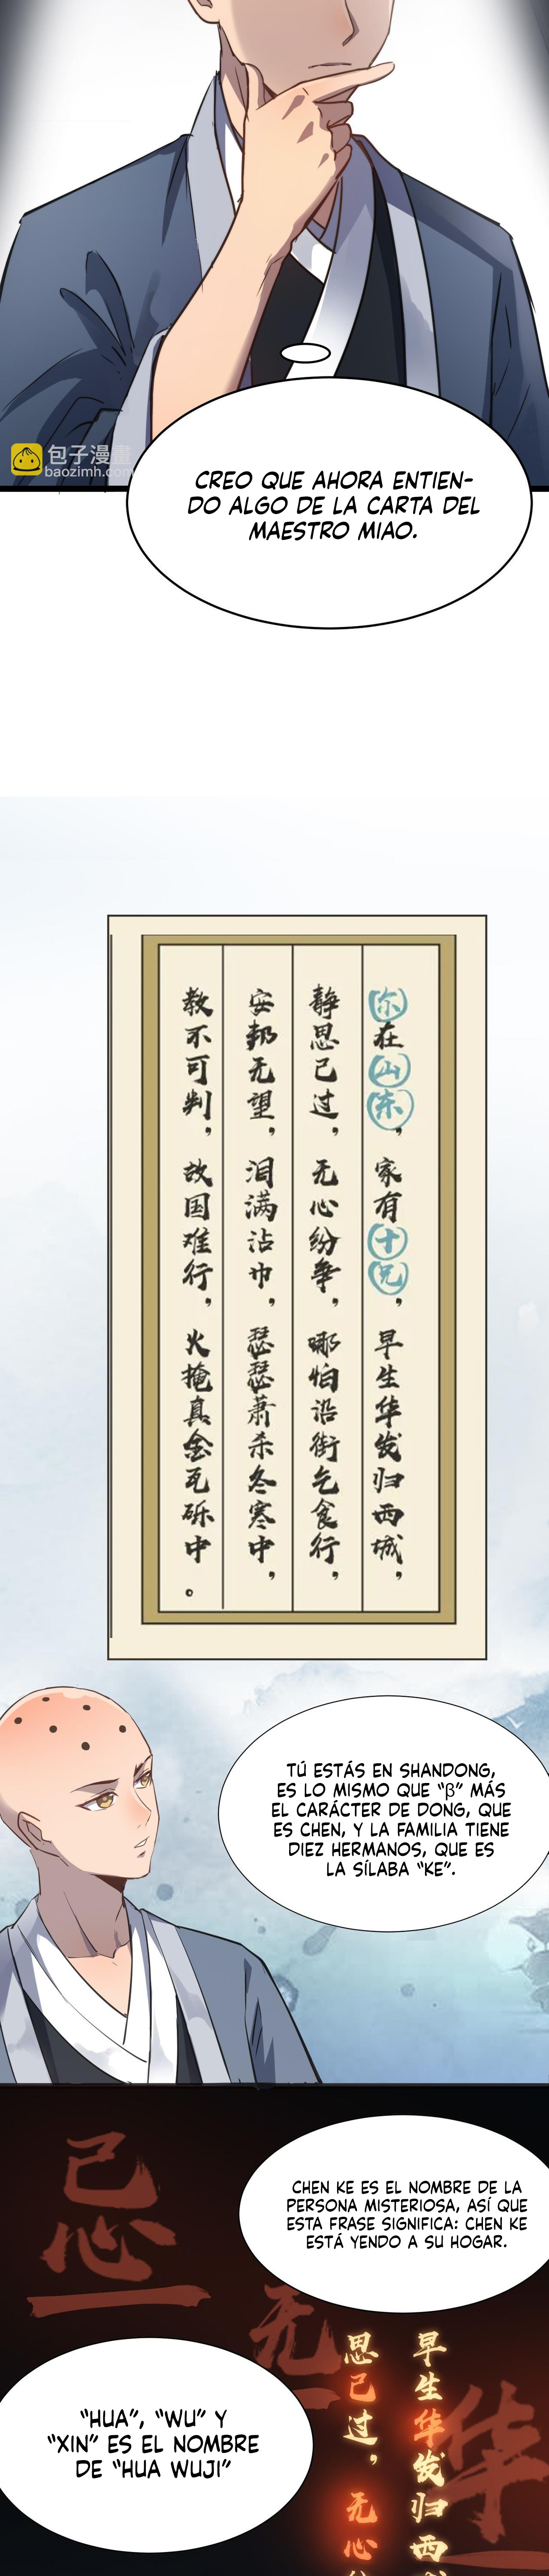 包子漫畫
baozimh.com
CREO QUE AHORA ENTIEN-
DO ALGO DE LA CARTA DEL
MAESTRO MIAO.
你在山东，家有十兄，早生华发归西城，
静思已过，无心纷争，哪怕沿街乞食行，
安邦无望，泪满沾巾，瑟瑟萧杀冬寒中，
教不可判，故国难行，火掩真金瓦砾中。
TÚ ESTÁS EN SHANDONG,
ES LO MISMO QUE "β" MÁS
EL CARÁCTER DE DONG, QUE
ES CHEN, Y LA FAMILIA TIENE
DIEZ HERMANOS, QUE ES
LA SÍLABA "KE".
CHEN KE ES EL NOMBRE DE LA
PERSONA MISTERIOSA, ASÍ QUE
ESTA FRASE SIGNIFICA: CHEN KE
ESTÁ YENDO A SU HOGAR.
忌
无
华
早生华发归西
思已过，无心
"HUA", "WU" Y
"XIN" ES EL NOMBRE
DE "HUA WUJI"